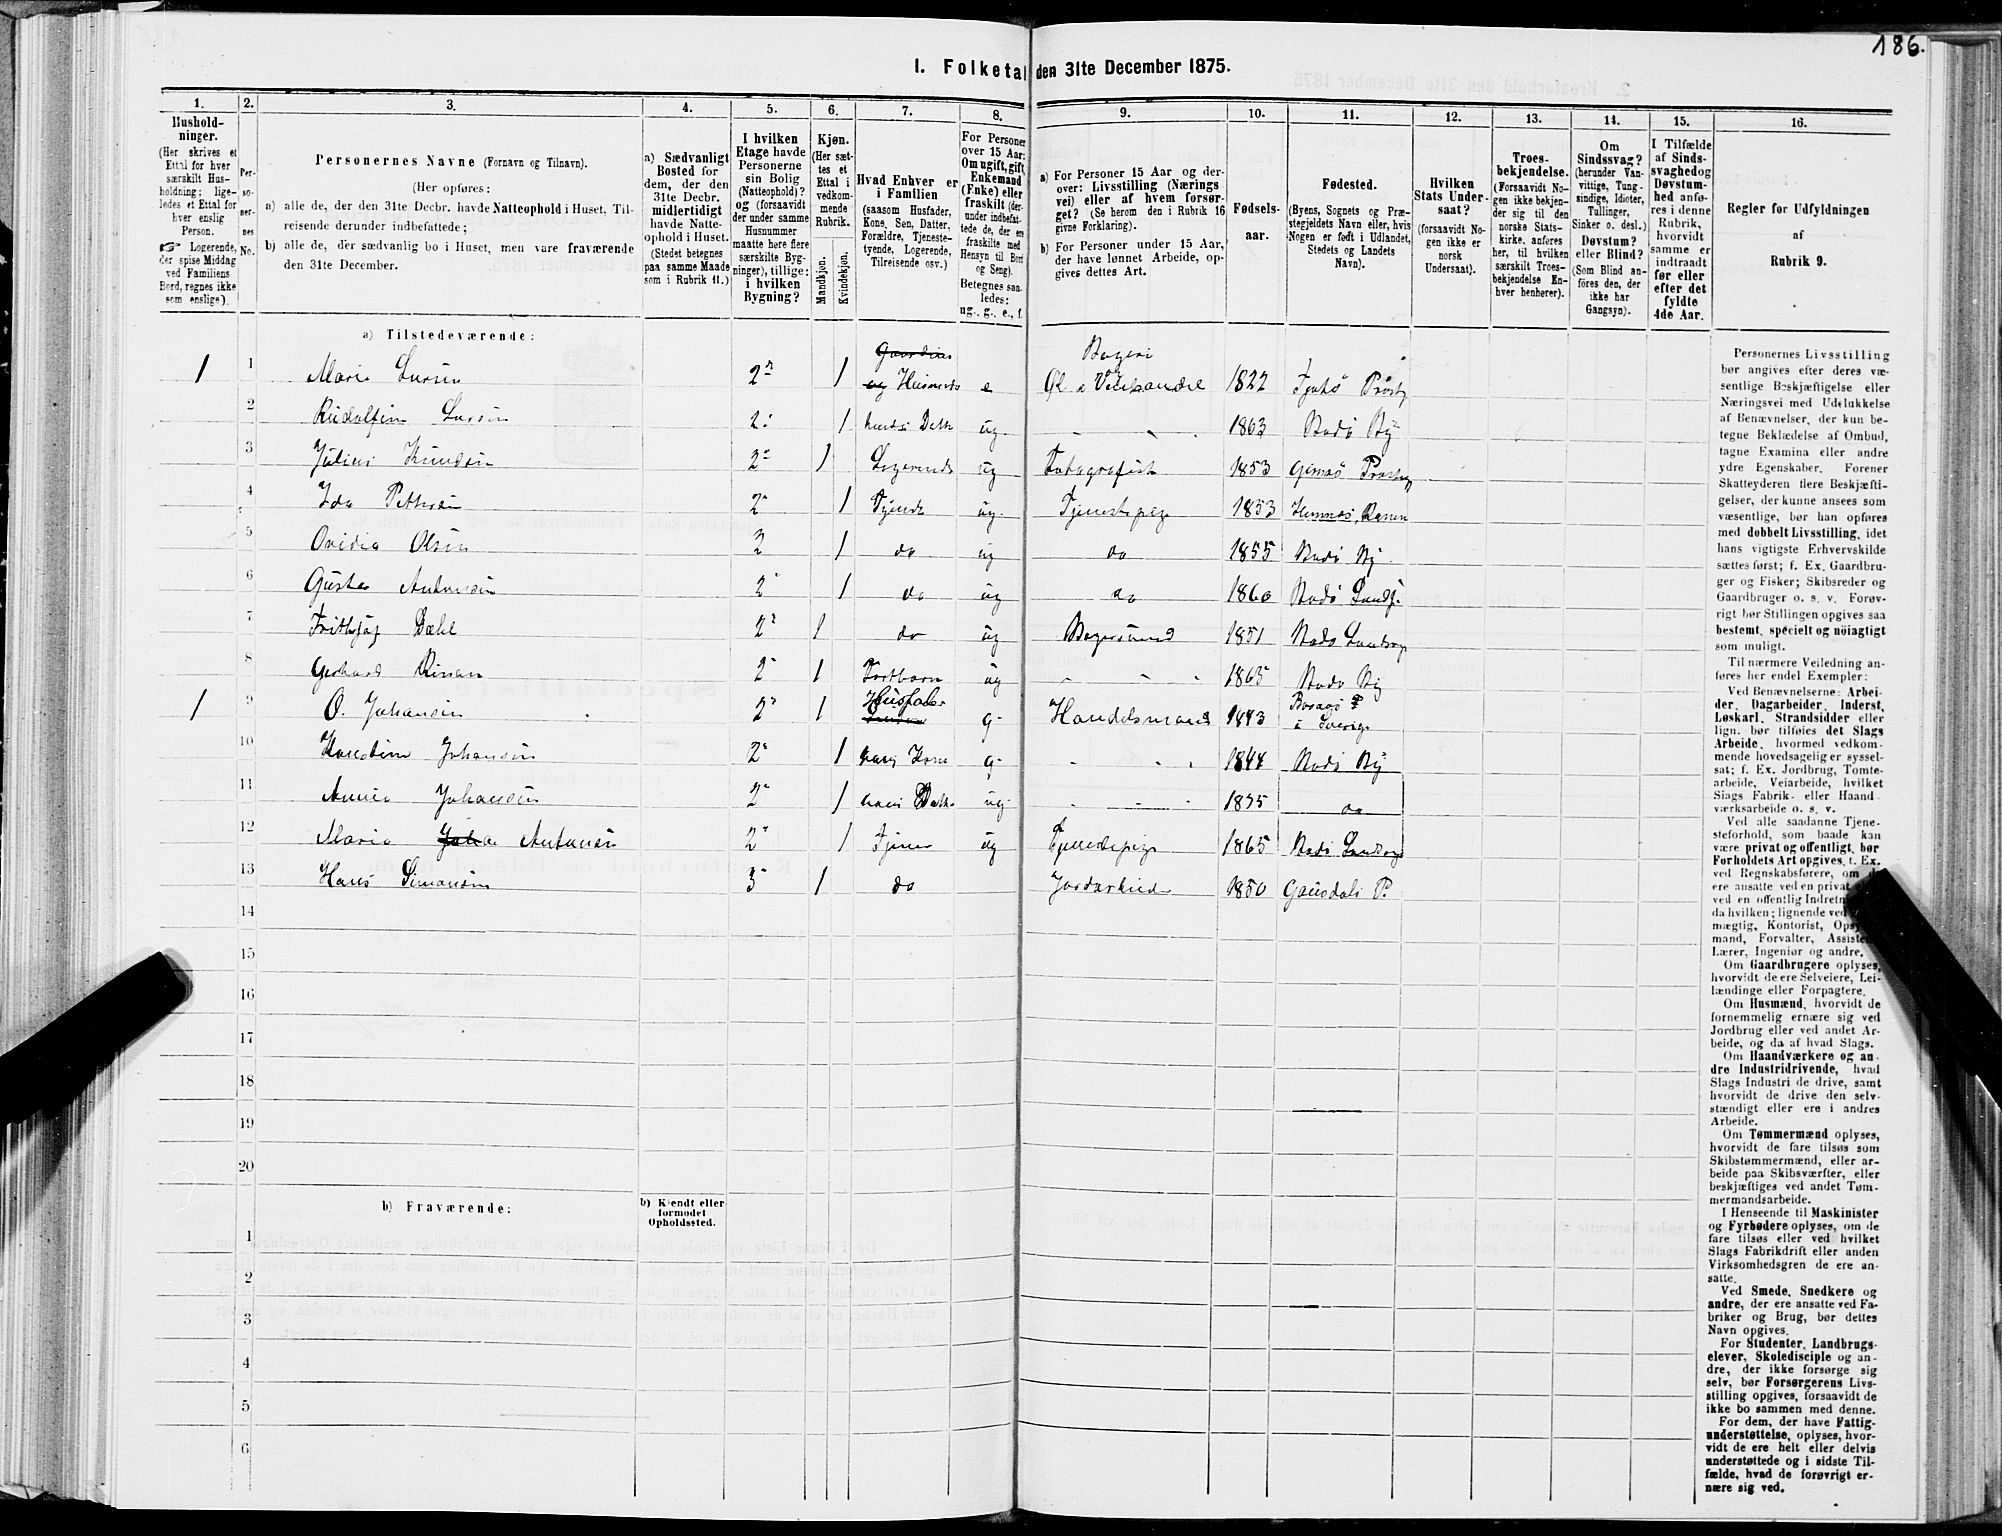 186.
I. Folketal den 31te December 1875.
1. 2. 3. 4. 5. 6. 7. 8. 9. 10. 11. 12. 13. 14. 15. 16.
Hushold-
ninger.
(Her skrives et
Ettal for hver
særskilt Hus-
holdning; lige-
ledes et Ettal for
hver enslig
Person.
☞ Logerende,
der spise Middag
ved Familiens
Bord, regnes ikke
som enslige).
Per-
so-
ner-
nes
No.
Personernes Navne (Fornavn og Tilnavn).
(Her opføres:
a) alle de, der den 31te Decbr. havde Natteophold i Huset, Til-
reisende derunder indbefattede;
b) alle de, der sædvanlig bo i Huset, men vare fraværende
den 31te December.
a) Sædvanligt
Bosted for
dem, der den
31te Decbr.
midlertidigt
havde Natte-
ophold i Huset.
(Stedet betegnes
paa samme Maade
som i Rubrik 11.)
I hvilken
Etage havde
Personerne
sin Bolig
(Natteophold)?
og (forsaavidt
der under samme
Husnummer
maatte høre flere
særskilte Byg-
ninger), tillige:
i hvilken
Bygning?
Kjøn.
(Her sæt-
tes et
Ettal i
vedkom-
mende
Rubrik.
Mandkjøn.
Kvindekjøn.
Hvad Enhver er
i Familien
(saasom Husfader,
Kone, Søn, Datter,
Forældre, Tjeneste-
tyende, Logerende,
Tilreisende osv.)
For Personer
over 15 Aar:
Om ugift, gift,
Enkemand
(Enke) eller
fraskilt (der-
under indbefat-
tede de, der ere
fraskilte med
Hensyn til Bord
og Seng).
Betegnes saa-
ledes:
ug., g., e., f.
a) For Personer 15 Aar og der-
over: Livsstilling (Nærings
vei) eller af hvem forsør-
get? (Se herom den i Rubrik 16
givne Forklaring).
b) For Personer under 15 Aar,
der have lønnet Arbeide, op-
gives dettes Art.
Fødsels-
aar.
Fødested.
(Byens, Sognets og Præ-
stegjeldets Navn eller, hvis
Nogen er født i Udlandet,
Stedets og Landets
Navn).
Hvilken
Stats Under-
saat?
(forsaavidt No-
gen ikke er
norsk
Undersaat).
Troes-
bekjendelse.
(Forsaavidt No-
gen ikke bekjen-
der sig til den
norske Stats-
kirke, anføres
her, til hvilken
særskilt Troes-
bekjendelse En-
hver henhører).
Om
Sindssvag?
(herunder Van-
vittige, Tung-
sindige, Idioter,
Tullinger,
Sinker o. desl.)
Døvstum?
eller Blind?
(Som Blind an-
föres den, der
ikke har
Gangsyn).
I Tilfælde
af Sinds-
svaghed og
Døvstum-
hed anfø-
res i denne
Rubrik,
hvorvidt
samme er
indtraadt
før eller
efter det
fyldte
4de Aar.
Regler for Udfyldningen
af
Rubrik 9.
a) Tilstedeværende:
1 1 Marie Larsen 2 1 Husmoder e Bageri Øl & Vinhandel 1822 Tjøtø Præstg
2 Rudolfine Larsen 2 1 hendes Datter ug 1863 Bodø By
3 Julius Knudsen 2 1 Logerende ug Fotografist 1853 Præstg
4 Ida Pettersen 2 1 Tjende ug. Tjenestepige 1853 Hemnæs, Ranen
5 Ovidia Olsen 2 1 do ug do 1855 Bodø By.
6 Gusta Antonsen 2 1 do ug do 1860 Bodø Landsg.
7 Frithjof Dahl 2 1 do ug Bagersvend 1851 Bodø Landsog
8 Gerhard 2 1 Fostbarn ug 1865 Bodø By
1 9 O. Johansen 2 1 Husfader g. Handelsmand 1843 i Sverige
10 Johansen 2 1 hans Kone g. 1844 Bodø By
11 Anna Johansen 2 1 hans Datter ug. 1875 do
12 Maria Antonsen 2 1 Tjener ug Tjenestepige 1865 Bodø Landsog
13 Hans Simonsen 3 1 do Jordarbeider 1850 Gausdals P.
14
15
16
17
18
19
20
b) Fraværende:
b) Kjendt eller
formodet
Opholdssted.
1
2
3
4
5
6
Personernes Livsstilling
bør angives efter deres væ-
sentlige Beskjæftigelse eller
Næringsvei med Udelukkelse
af Benævnelser, der kun be-
tegne Beklædelse af Ombud,
tagne Examina eller andre
ydre Egenskaber. Forener
Skatteyderen flere Beskjæfti-
gelser, der kunne ansees som
væsentlige, bør han opføres
med dobbelt Livsstilling, idet
hans vigtigste Erhvervskilde
sættes først; f. Ex. Gaardbru-
ger og Fisker; Skibsreder og
Gaardbruger o. s. v. Forøv-
rigt bør Stillingen opgives saa
bestemt, specielt og nöiagtigt
som muligt.
Til nærmere Veiledning an-
føres her endel Exempler:
Ved Benævnelserne: Arbei-
der, Dagarbeider, Inderst,
Løskarl, Strandsidder eller
lign. bør tilføies det Slags
Arbeide, hvormed vedkom-
mende hovedsagelig er syssel-
sat; f. Ex. Jordbrug, Tomte-
arbeide, Veiarbeide, hvilket
Slags Fabrik- eller Haand-
værksarbeide o. s. v.
Ved alle saadanne Tjene-
steforhold, som baade kan
være privat og offentligt, bør
Forholdets Art opgives, t. Ex.
ved Regnskabsførere, om de
ere ansatte ved en privat
ved en offentlig Indretn
da hvilken; lignende ved
mægtig, Kontorist, Opsy
mand, Forvalter, Assiste
Lærer, Ingeniør og andre.
Om Gaardbrugere oplyses,
hvorvidt de ere Selveiere, Lei-
lændinge eller Forpagtere.
Om Husmænd, hvorvidt de
fornemmelig ernære sig ved
Jordbrug eller ved andet Ar-
beide, og da af hvad Slags.
Om Haandværkere og an-
dre Industridrivende, hvad
Slags Industri de drive, samt
hvorvidt de drive den selv-
stændigt eller ere i andres
Arbeide.
Om Tømmermænd oplyses,
hvorvidt de fare tilsøs som
Skibstømmermænd, eller ar-
beide paa Skibsværfter, eller
beskjæftiges ved andet Tøm-
mermandsarbeide.
I Henseende til Maskinister
og Fyrbødere oplyses, om de
fare tilsøs eller ved hvilket
Slags Fabrikdrift eller anden
Virksomhedsgren de ere an-
satte.
Ved Smede, Snedkere og
andre, der ere ansatte ved Fa-
briker og Brug, bør dettes
Navn opgives.
For Studenter, Landbrugs-
elever, Skoledisciple og an-
dre, der ikke forsørge sig
selv, bør Forsørgerens Livs-
stilling opgives, forsaavidt de
ikke bo sammen med denne.
For dem, der have Fattig-
understøttelse, oplyses, hvor-
vidt de ere helt eller delvis
understøttede og i sidste Til-
fælde, hvad de forøvrigt er-
nære sig ved.